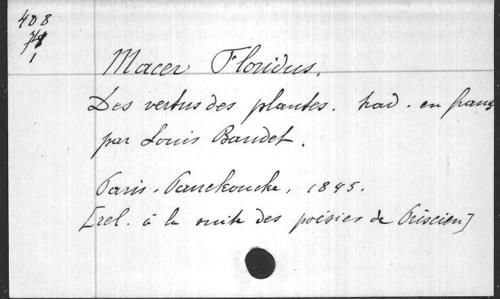 408
1
Macer Floridus.
Des vertus des plantes. trad. en franç
par Louis Baudet.
Paris. Panckoucke, 1845.
[rel. à la suite des poésies de Priscien]